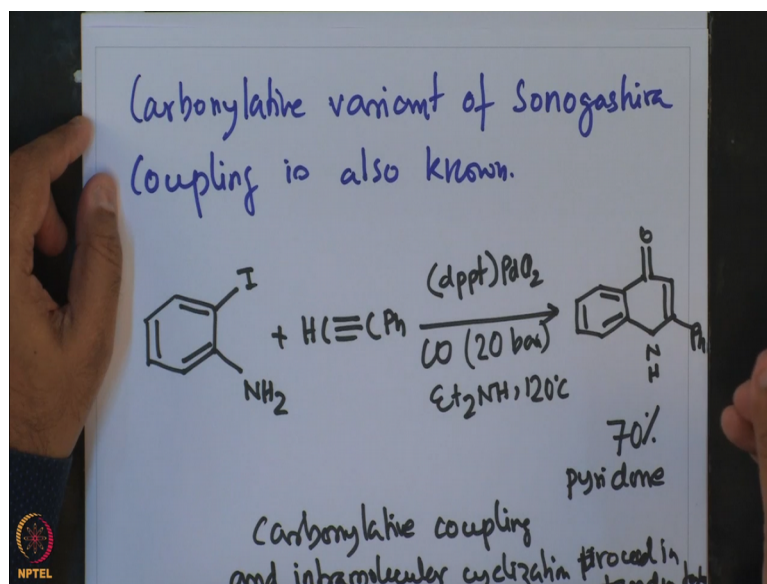 Carbonylative variant of Sonogashira
Coupling is also known.
I
NH2
+ HC≡CPh
(dppt)PdCl2
CO (20 bar)
Et2NH, 120°C
O
Ph
N
H
70%
pyridone
Carbonylative coupling
and intramolecular cyclization proceed in
NPTEL